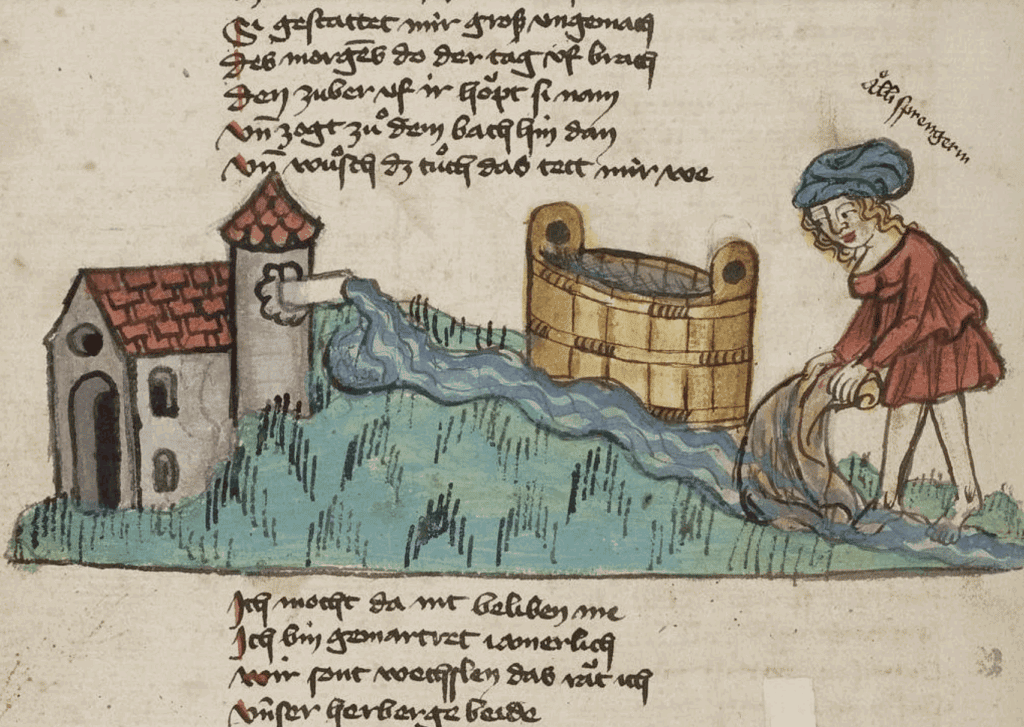 Si gestattet mir groß vngemach
Des morgēs do der tag vf brach
Den zuber vf ir hoͮpt si nam
vn̄ zogt zuͦ dem bach hin dan
vn̄ wuͦsch dz tuͦch das tett mir we
Ich mocht da nit beliben me
Ich bin gemartret iamerlich
wir sont wechslen das raͧt ich
vn̄ser herberge beide